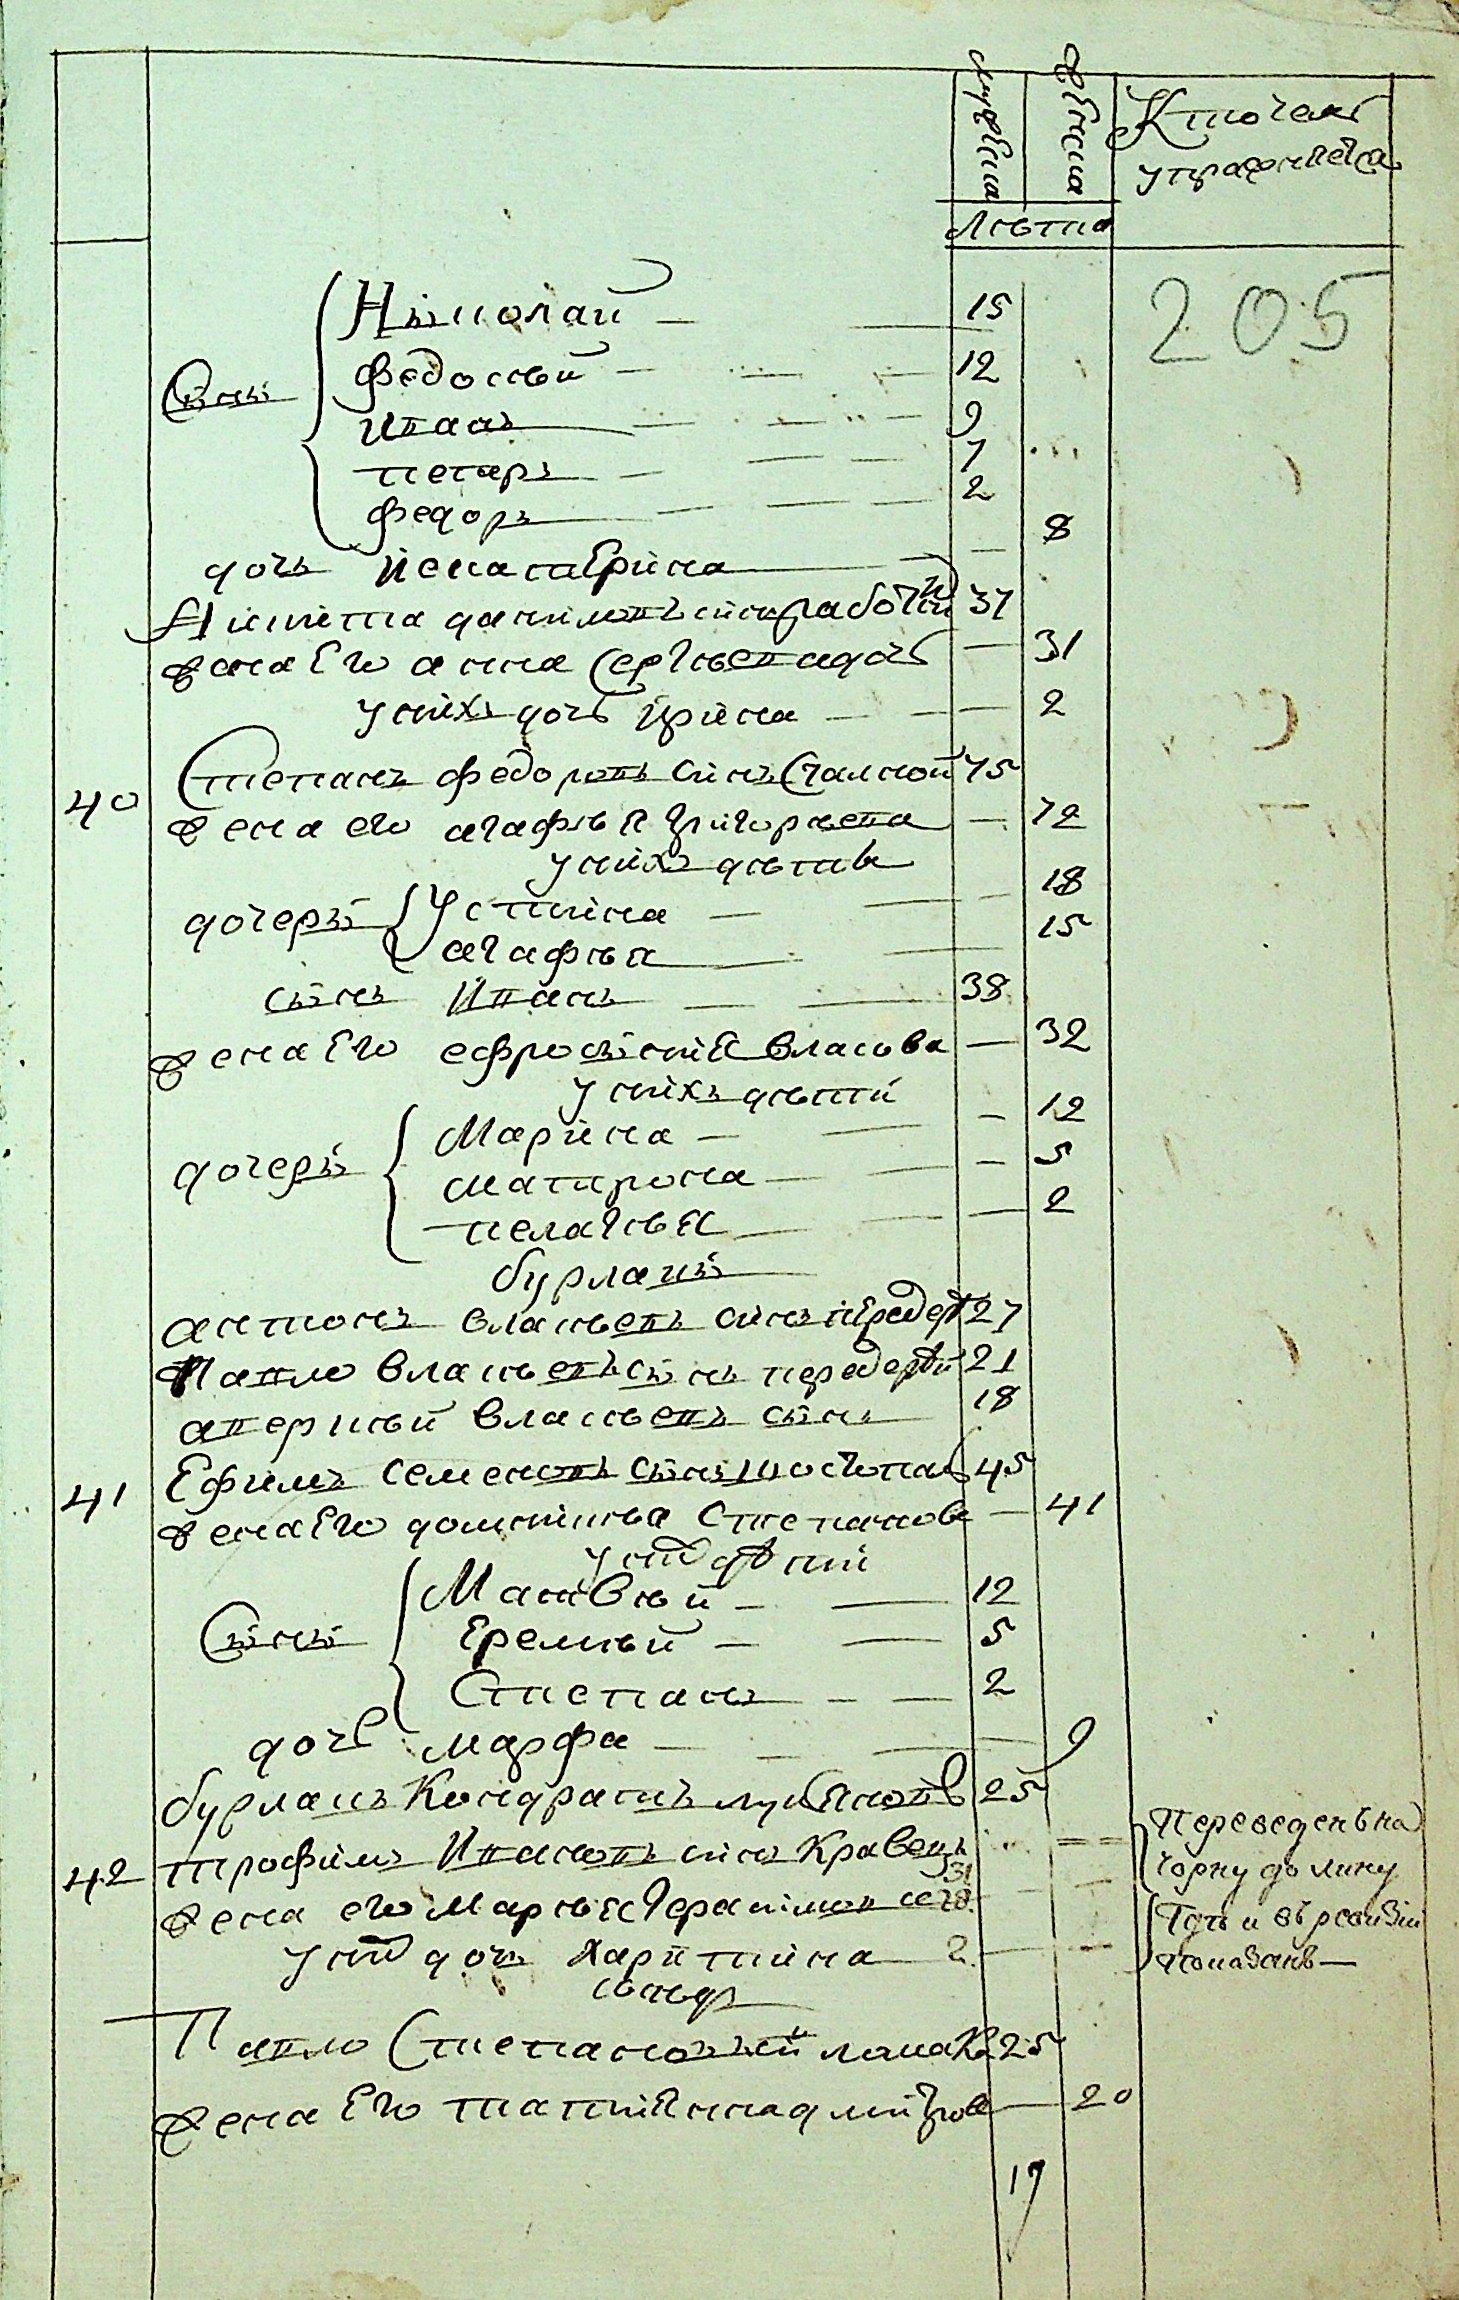 мужеска
женска
Кто чемъ
упражняется
Лѣта
205
Сыны
Николай 15
Федосѣй 12
Иванъ 9
Петаръ 7
Федоръ 2
дочь Йекатерина 8
Никита даниловъ синъ работни 37
жена Его анна Сергѣева дочь 31
у нихъ дочь Ирина 2
40 Степанъ федоровъ синъ Сталной 75
жена его агафѣя Григорьева 72
у нихъ дѣти
дочеры Устина 18
агафѣя 15
сынъ Иванъ 38
жена Его ефросиния власова 32
у нихъ дѣти
дочеры Марина 12
матрона 5
пелагѣя 2
бурлаки
антонъ власьевъ синъ передер 27
Павло власьевъ сынъ передерѣй 21
аверкѣй власьевъ сынъ 18
41 Ефимъ семеновъ сынъ 45
жена Его домникѣя Степанова 41
у них дѣти
Сыны Матвѣй 12
Еремѣй 5
Степанъ 2
дочь марфа 9
бурлакъ Кондратъ лукяновъ 25
42 трофимъ Ивановъ синъ Кравецъ 31
жена его Марѣя Герасимова 28
у них дочь Харитина 2
Переведенъ на
Чорну долину
Тутъ и въ ревизии
показанъ
сосѣд
Павло Степановъ 25
жена Его татияна дмитров 20
17